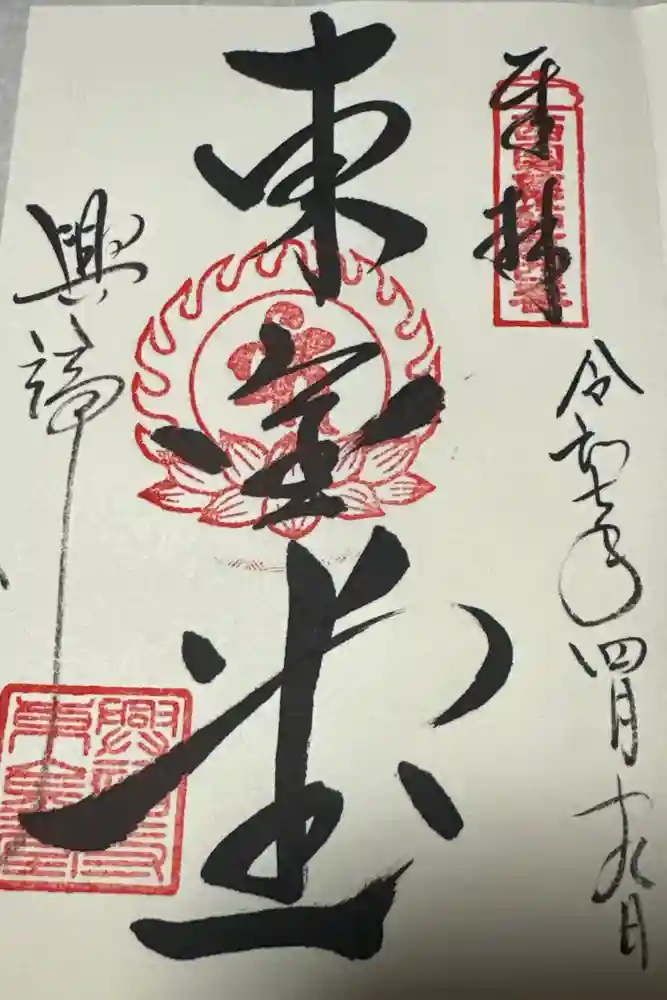 奉拝
令和七年四月十九日
東金堂
興福寺
興福寺
東金堂